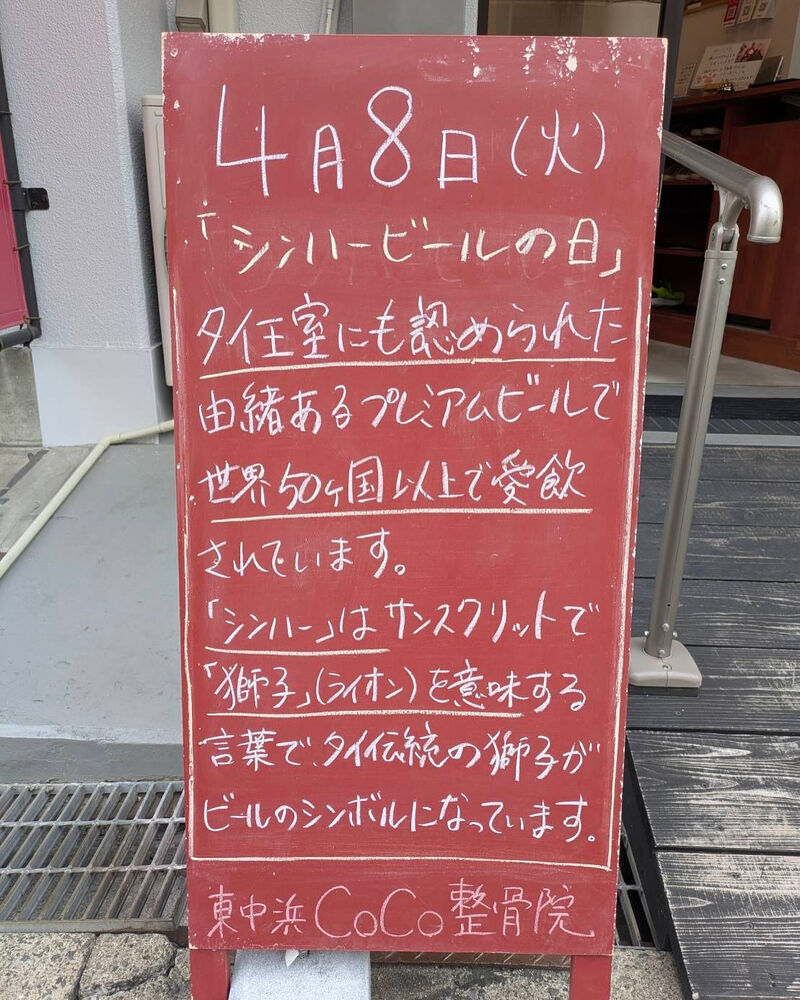 4月8日(火)
「シンハービールの日」
タイ王室にも認められた
由緒あるプレミアムビールで
世界50ヶ国以上で愛飲
されています。
「シンハー」はサンスクリットで
「獅子」(ライオン)を意味する
言葉で、タイ伝統の獅子が
ビールのシンボルになっています。
東中浜CoCo整骨院